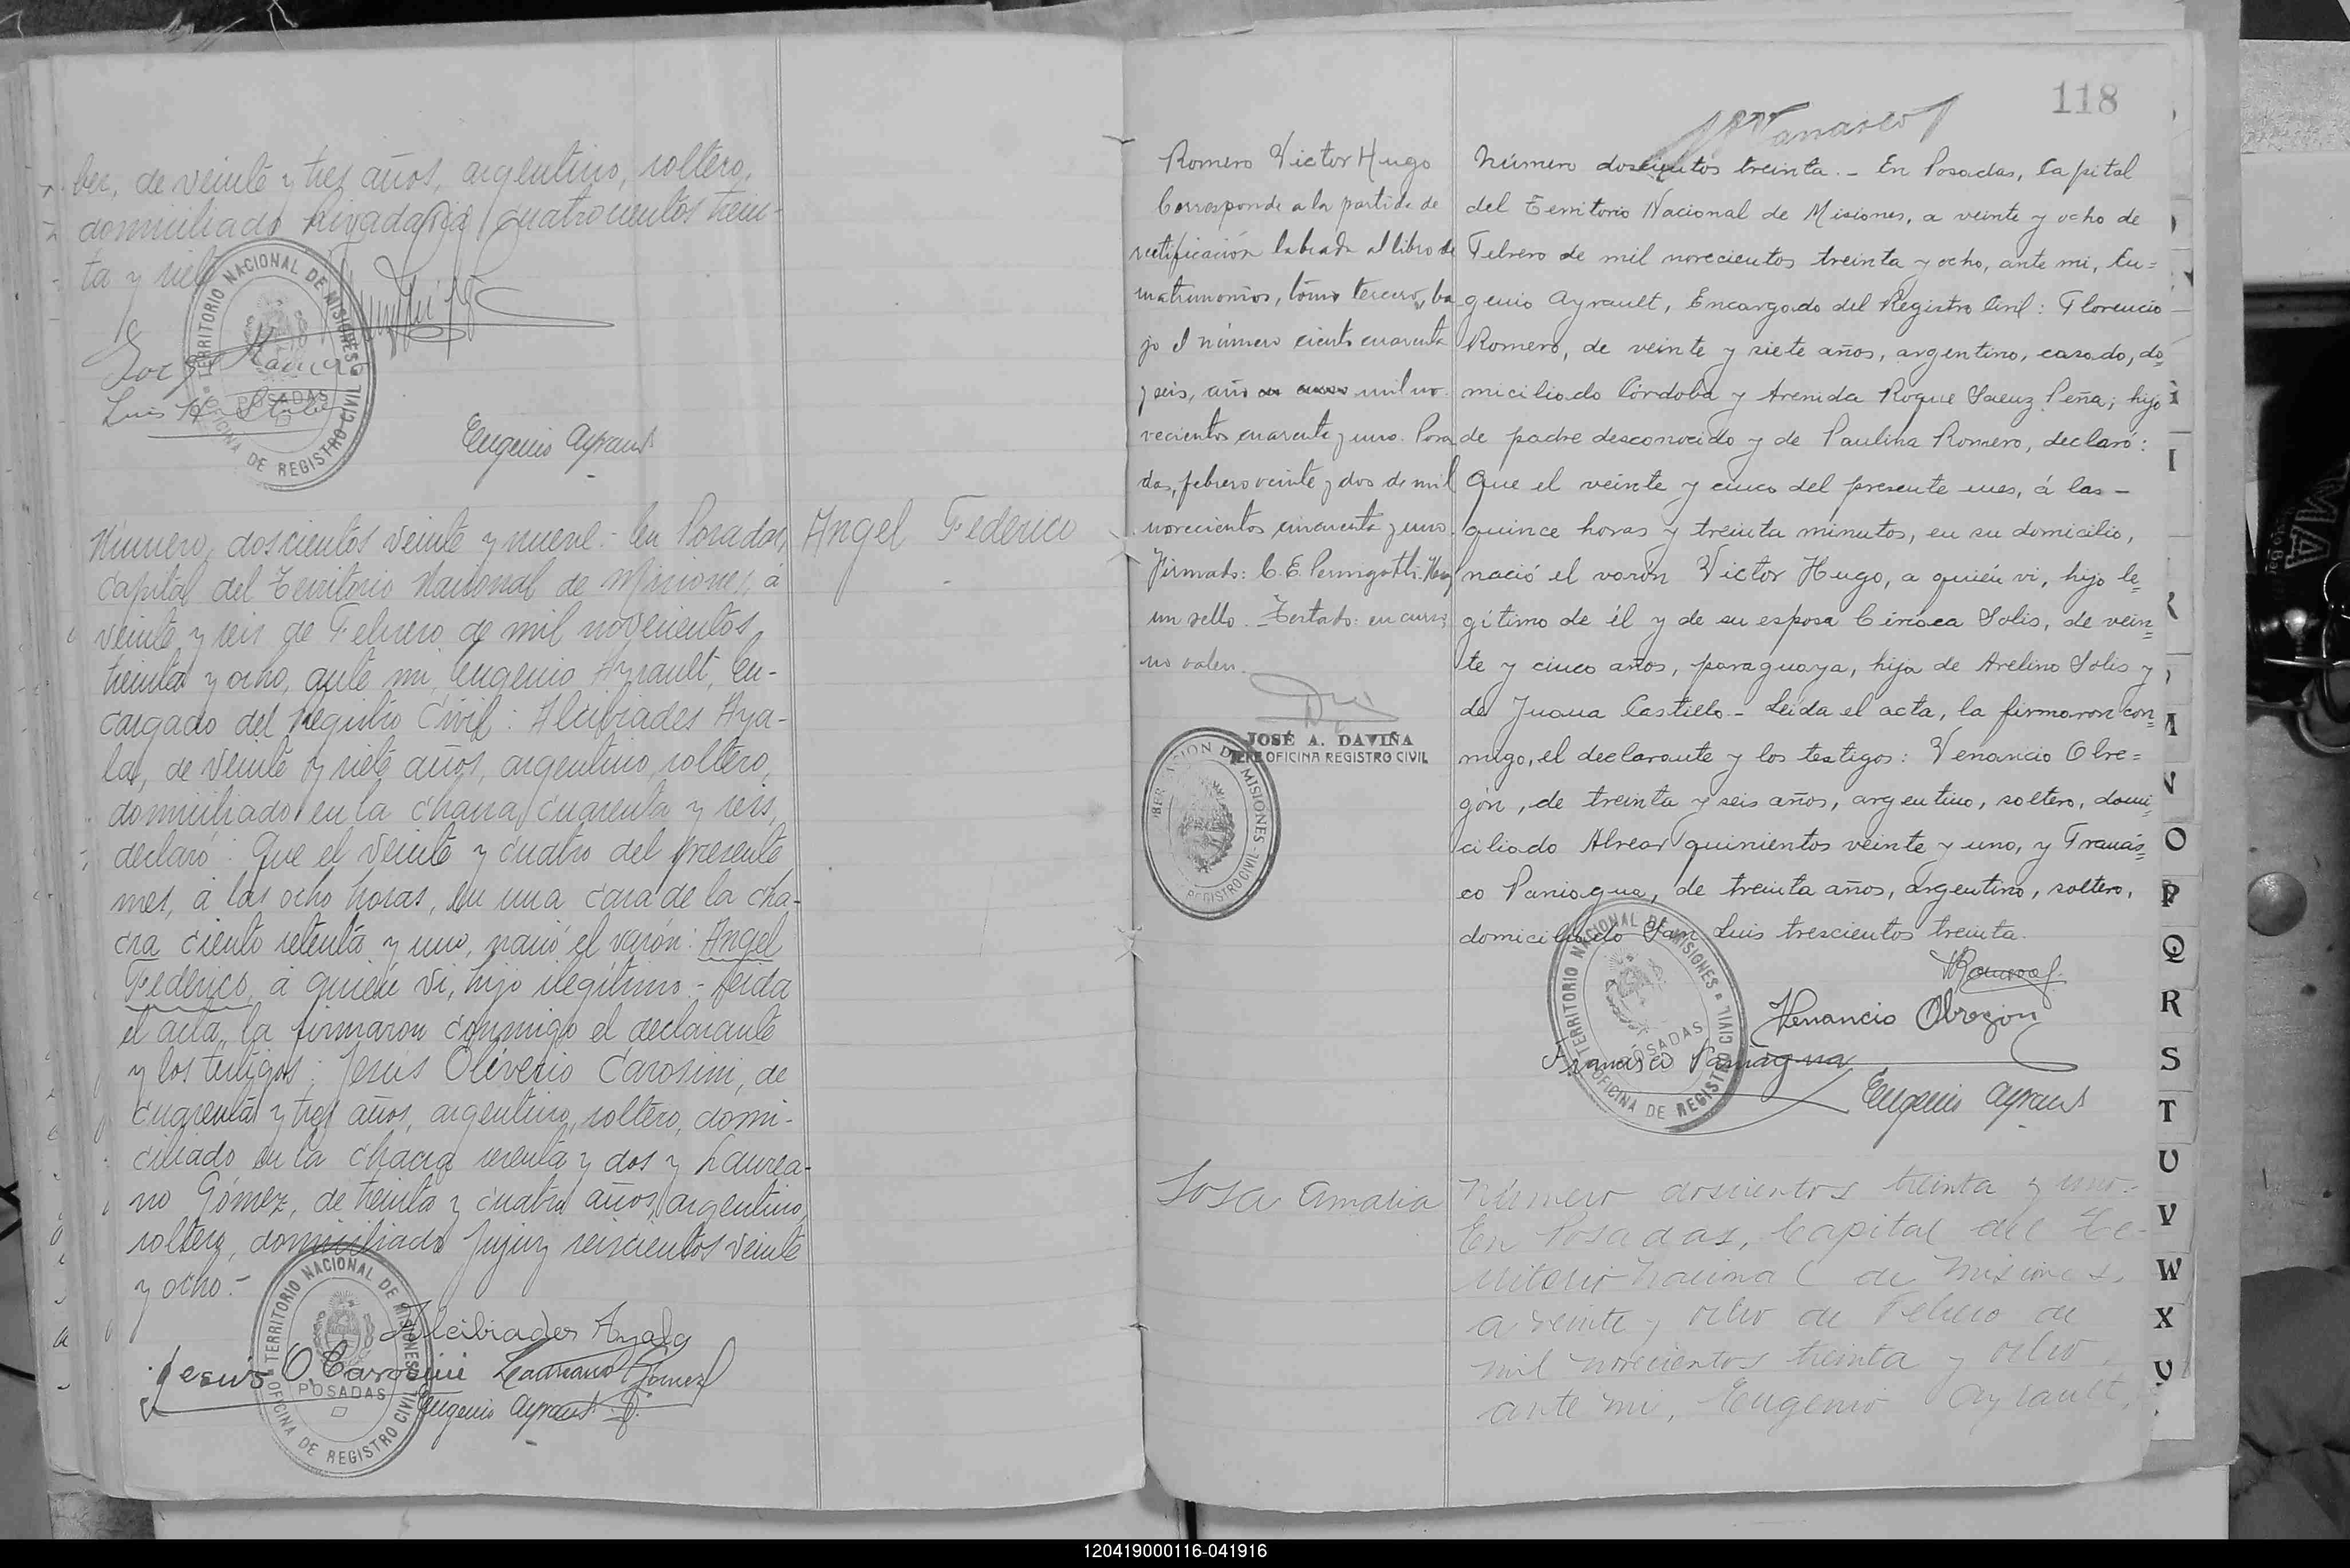 ber, de veinte y tres años, argentino, soltero,
domiciliado Rivadavia cuatrocientos trein-
ta y siete
TERRITORIO NACIONAL DE MISIONES
POSADAS
OFICINA DE REGISTRO CIVIL
Eugenio Ayrault
Número doscientos veinte y nueve.- En Posadas,
Capital del Territorio Nacional de Misiones, á
veinte y seis de Febrero de mil novecientos
treinta y ocho, ante mi, Eugenio Ayrault, En-
cargado del Registro Civil: Alcibiades Aya-
la, de veinte y siete años, argentino, soltero,
domiciliado en la chacra cuarenta y seis,
declaró: Que el veinte y cuatro del presente
mes, á las ocho horas, en una casa de la cha-
cra ciento setenta y uno, nació el varón: Angel
Federico, á quién vi, hijo ilegítimo.- Leida
el acta, la firmaron conmigo el declarante
y los testigos: Jesús Oliverio Carosini, de
cuarenta y tres años, argentino, soltero, domi-
ciliado en la chacra sesenta y dos y Laurea-
no Gómez, de treinta y cuatro años, argentino,
soltero, domiciliado Jujuy seiscientos veinte
y ocho.-
Angel Federico
Alcibiades Ayala
Jesús O. Carosini Laureano Gómez
Eugenio Ayrault
TERRITORIO NACIONAL DE MISIONES
POSADAS
OFICINA DE REGISTRO CIVIL
118
Romero Victor Hugo
Corresponde a la partida de
rectificación labrada al libro de
matrimonios, tomo tercero, ba
jo el número ciento cuarenta
y seis, año en curso mil no-
vecientos cuarenta y uno. Posa
das, febrero veinte y dos de mil
novecientos cincuenta y uno.
Firmado: C. E. Pernigotti. Hay
un sello. Testado: en curso
no valen.
JOSÉ A. DAVIÑA
JEFE OFICINA REGISTRO CIVIL
MISIONES
REGISTRO CIVIL
Número doscientos treinta.- En Posadas, Capital
del Territorio Nacional de Misiones, a veinte y ocho de
Febrero de mil novecientos treinta y ocho, ante mi, Eu=
genio Ayrault, Encargado del Registro Civil: Florencio
Romero, de veinte y siete años, argentino, casado, do=
miciliado Córdoba y Avenida Roque Saenz Peña; hijo
de padre desconocido y de Paulina Romero, declaró:
Que el veinte y cinco del presente mes, á las -
quince horas y treinta minutos, en su domicilio,
nació el varón Victor Hugo, a quién vi, hijo le=
gítimo de él y de su esposa Ciriaca Solis, de vein=
te y cinco años, paraguaya, hija de Avelino Solis y
de Juana Castillo.- Leida el acta, la firmaron con=
migo, el declarante y los testigos: Venancio Obre=
gón, de treinta y seis años, argentino, soltero, domi=
ciliado Alvear quinientos veinte y uno, y Franás=
co Paniagua, de treinta años, argentino, soltero,
domiciliado San Luis trescientos treinta.
Venancio Obregon
Paniagua
Eugenio Ayrault
TERRITORIO NACIONAL DE MISIONES
POSADAS
OFICINA DE REGISTRO CIVIL
Sosa Amalia
Número doscientos treinta y uno.-
En Posadas, Capital del Te-
rritorio Nacional de Misiones,
a veinte y ocho de Febrero de
mil novecientos treinta y ocho,
ante mi, Eugenio Ayrault,
O
P
Q
R
S
T
U
V
W
X
120419000116-041916